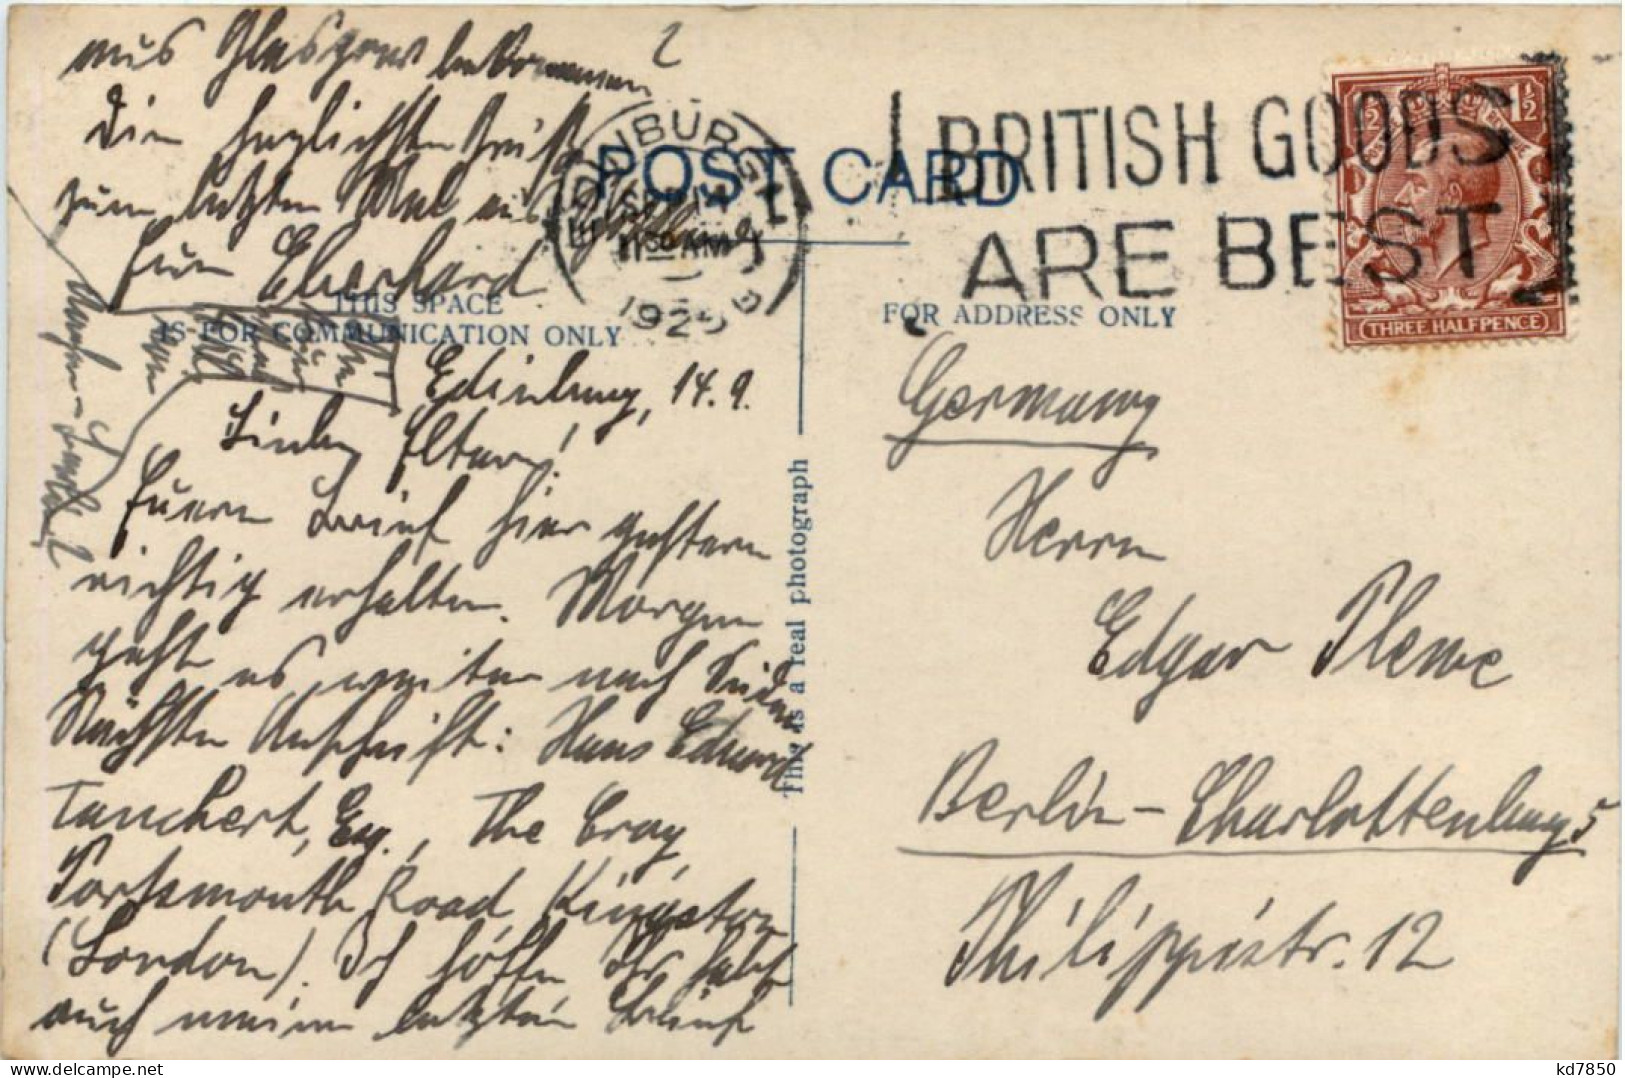 aus Glasgow bekommen
2
Die herzlichsten Grüße
zum letzten Mal aus
Euer Eberhard
EDINBURGH
SP 14
11 30 AM
192
POST CARD
BRITISH GOODS
ARE BEST
THREE HALFPENCE
THIS SPACE
IS FOR COMMUNICATION ONLY
FOR ADDRESS ONLY
Edinburg, 14.9.
Liebe Eltern!
Euern Brief hier gestern
richtig erhalten. Morgen
geht es weiter nach Süden
Nächste Anschrift: Hans Eduard
Tanchert, Esq., The Cray,
Portsmouth Road, Kingston
(London). Ich hoffe Ihr habt
auch meinen letzten Brief
This is a real photograph
Germany
Herrn
Edgar Plewe
Berlin-Charlottenburg 5
Philippistr. 12
kd7850